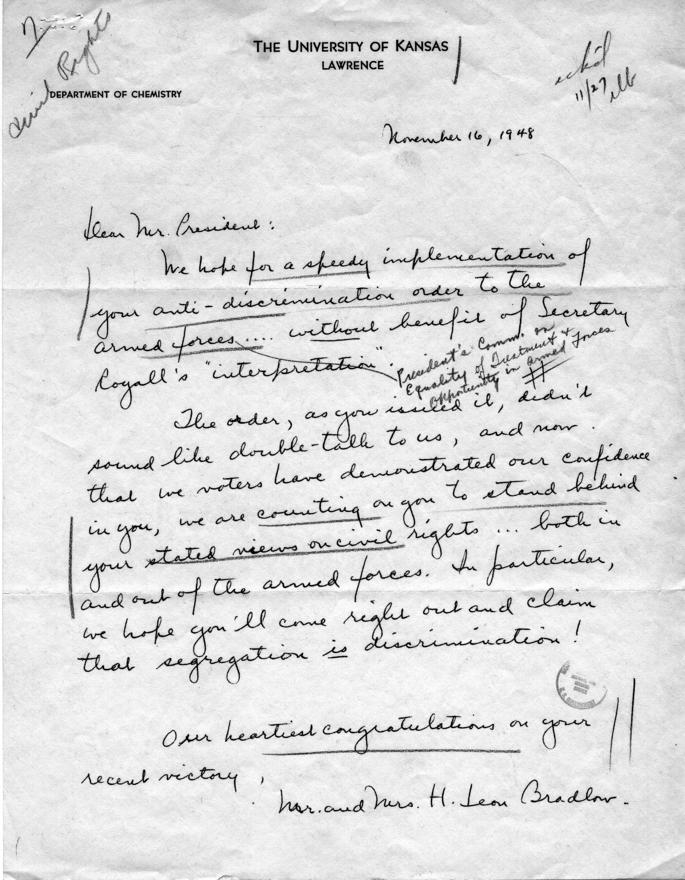 Civil Rights
THE UNIVERSITY OF KANSAS
LAWRENCE
DEPARTMENT OF CHEMISTRY
ackd
11/27
November 16, 1948
Dear Mr. President:
We hope for a speedy implementation of
your anti-discrimination order to the
armed forces.... without benefit of Secretary
Royall's "interpretation".
President's Comm. on
Equality of Treatment &
Opportunity in Armed Forces
The order, as you issued it, didn't
sound like double-talk to us, and now
that we voters have demonstrated our confidence
in you, we are counting on you to stand behind
your stated views on civil rights ... both in
and out of the armed forces. In particular,
we hope you'll come right out and claim
that segregation is discrimination!
Our heartiest congratulations on your
recent victory,
Mr. and Mrs. H. Leon Bradlow.